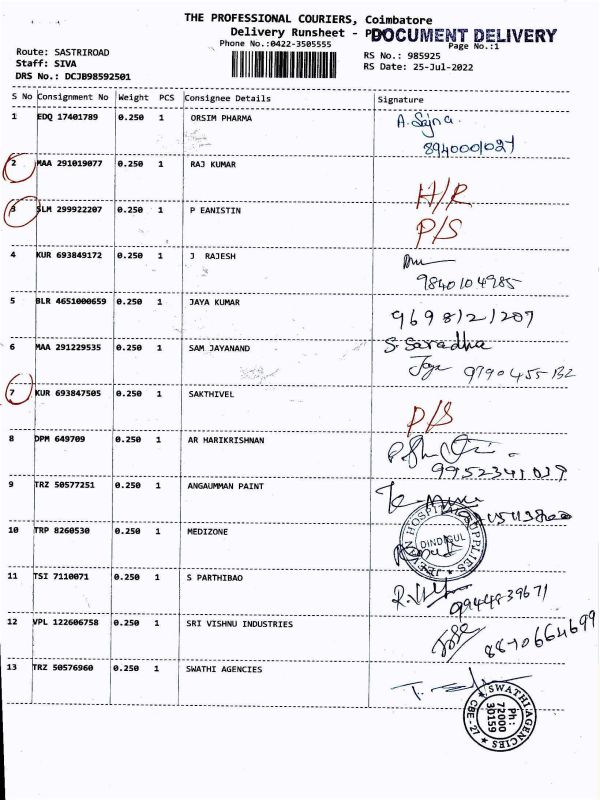 THE PROFESSIONAL COURIERS, Coimbatore
Delivery Runsheet - P DOCUMENT DELIVERY
Phone No.:0422-3505555
Page No.:1
Route: SASTRIROAD
RS No.: 985925
Staff: SIVA
RS Date: 25-Jul-2022
DRS No.: DCJB98592501
S No Consignment No Weight PCS Consignee Details Signature
1 EDQ 17401789 0.250 1 ORSIM PHARMA A. Sajna.
8940001027
2 MAA 291019077 0.250 1 RAJ KUMAR
H/R
3 SLM 299922207 0.250 1 P EANISTIN
P/S
4 KUR 693849172 0.250 1 J RAJESH
9840104985
5 BLR 4651000659 0.250 1 JAYA KUMAR
9698121207
6 MAA 291229535 0.250 1 SAM JAYANAND S. Saradha
9790455132
7 KUR 693847505 0.250 1 SAKTHIVEL
P/S
8 DPM 649709 0.250 1 AR HARIKRISHNAN
9952341039
9 TRZ 50577251 0.250 1 ANGAUMMAN PAINT
10 TRP 8260530 0.250 1 MEDIZONE
JEEVAN HOSPITAL SUPPLIES
DINDIGUL
11 TSI 7110071 0.250 1 S PARTHIBAO
9944839671
12 VPL 122606758 0.250 1 SRI VISHNU INDUSTRIES
8870664699
13 TRZ 50576960 0.250 1 SWATHI AGENCIES
SWATHI AGENCIES
Ph:
72000
30159
CBE - 27